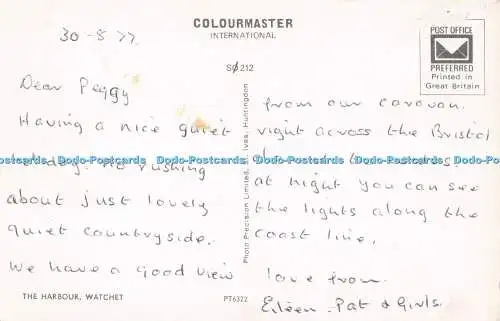 COLOURMASTER
INTERNATIONAL
POST OFFICE
PREFERRED
Printed in
Great Britain
SØ 212
30-8-77
Dear Peggy
Having a nice quiet
No rushing
about just lovely
quiet countryside.
We have a good view
THE HARBOUR, WATCHET
PT6322
Photo Precision Limited, St. Ives, Huntingdon
from our caravan.
right across the Bristol
at night you can see
the lights along the
coast line.
love from
Eileen - Pat & Girls.
Dodo-Postcards Dodo-Postcards Dodo-Postcards Dodo-Postcards Dodo-Postcards